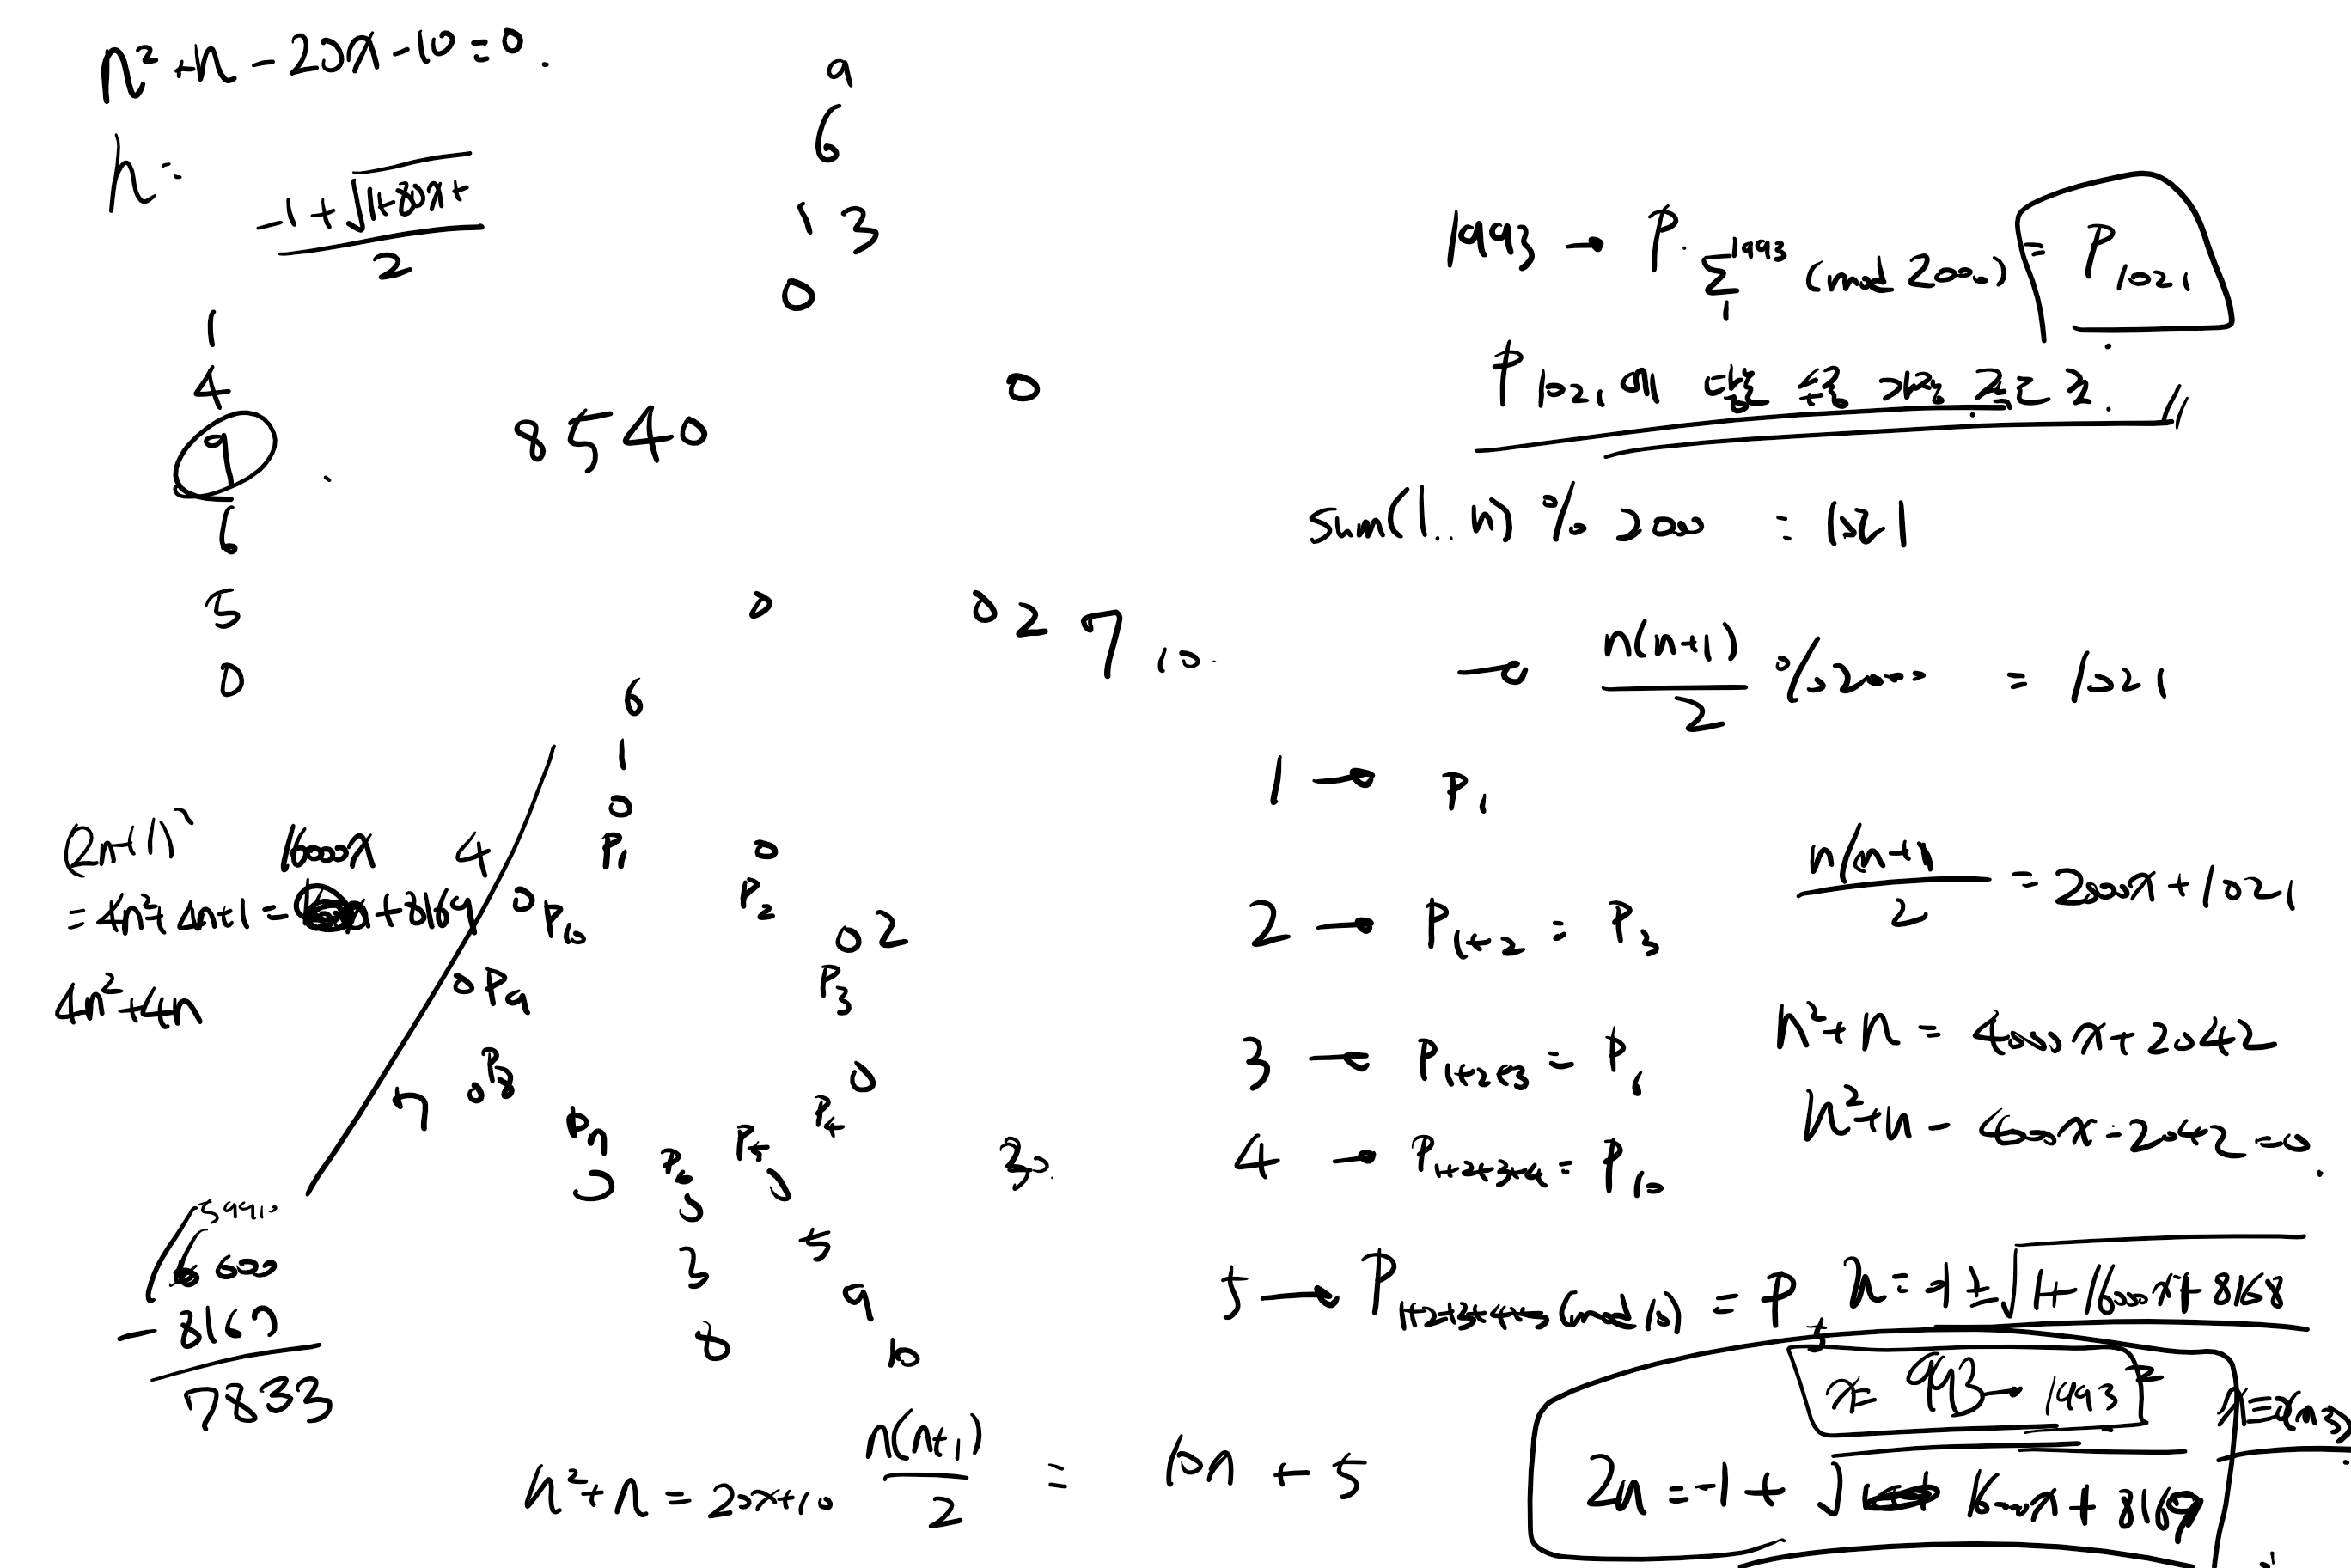 n² + n - 20x - 10 = 0.
n =
-1 + √1+80x+
2
1
4
9
6
5
0
a
6
1 3
0
8540
0
0
0 2 7 10
6
1
0
P₁
0
P₂
0 2
P₃
0
P₄
P₅
5
P₆
P₇
P₈
0 P₉
0 P₁₀
7
3
8
5
9
10
(2n+1)²
16000x
4
= 4n² + 4n + 1 = + 8169
4n² + 4n
- 8169
7833
n² + n = 20x + 10
n(n+1)
2
= 10x + 5
1993 → P Σ₁¹⁹⁹³ (mod 2000) = P₁₀₂₁
P₁₀₂₁ 에
sum(1..n) % 2000 = 1021
→ n(n+1)
2
% 2000 = 1021
1 → P₁
2 → P₁₊₂ = P₃
3 → P₁₊₂₊₃ = P₆
4 → P₁₊₂₊₃₊₄ = P₁₀
5 → P₁₊₂₊₃₊₄₊₅ (mod 10) = P₅
n(n+1)
2
= 2000x + 1021
n² + n = 4000x + 2042
n² + n - 4000x - 2042 = 0.
n = -1 ± √1 + 16000x + 8168
x = 993 → 1993²
2n = -1 + √16000x + 8169